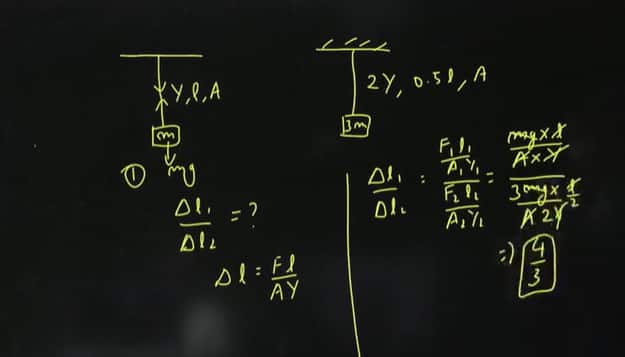 Y, l, A
m
① mg
Δl₁ / Δl₂ = ?
Δl = Fl / AY
2Y, 0.5l, A
3m
Δl₁ / Δl₂ : (F₁l₁ / A₁Y₁) / (F₂l₂ / A₂Y₂) = (mg × l / A × Y) / (3mg × l/2 / A 2Y)
=) 4/3